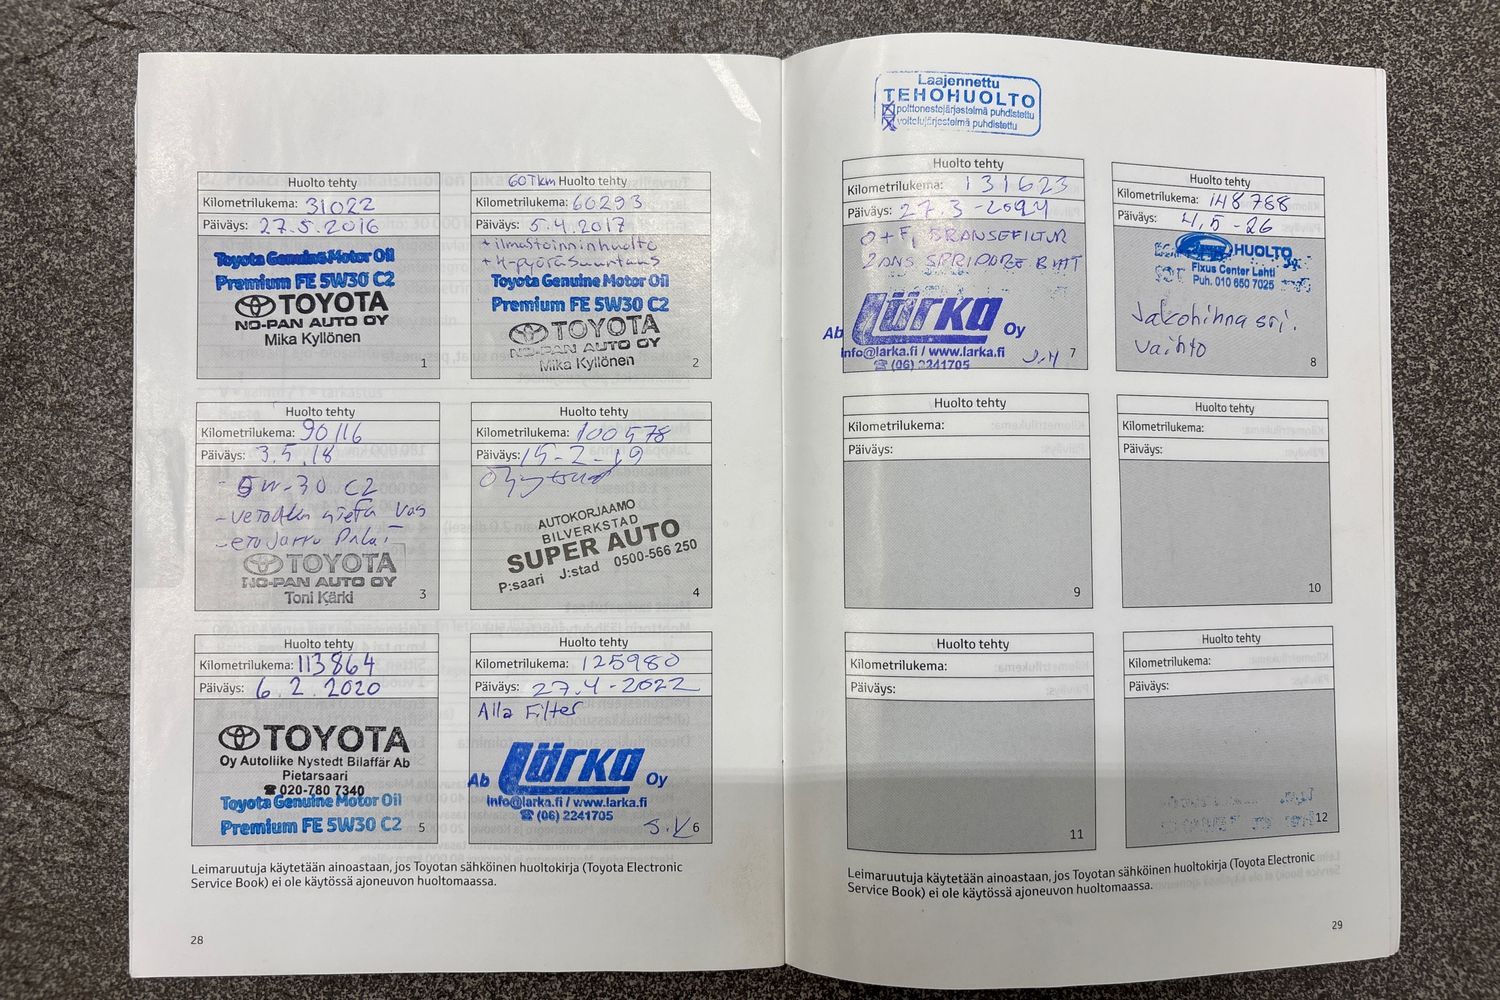 Huolto tehty
Kilometrilukema: 31022
Päiväys: 27.5.2016
Toyota Genuine Motor Oil
Premium FE 5W30 C2
TOYOTA
NO-PAN AUTO OY
Mika Kyllönen
1
60Tkm Huolto tehty
Kilometrilukema: 60293
Päiväys: 5.4.2017
+ ilmastoinninhuolto
+ 4-pyöräsuuntaus
Toyota Genuine Motor Oil
Premium FE 5W30 C2
TOYOTA
NO-PAN AUTO OY
Mika Kyllönen
2
Huolto tehty
Kilometrilukema: 90116
Päiväys: 3.5.18
- 5W-30 C2
TOYOTA
NO-PAN AUTO OY
Toni Kärki
3
Huolto tehty
Kilometrilukema: 100578
Päiväys: 15-2-19
AUTOKORJAAMO
BILVERKSTAD
SUPER AUTO
P:saari J:stad 0500-566 250
4
Huolto tehty
Kilometrilukema: 113864
Päiväys: 6.2.2020
TOYOTA
Oy Autoliike Nystedt Bilaffär Ab
Pietarsaari
☎ 020-780 7340
Toyota Genuine Motor Oil
Premium FE 5W30 C2
5
Huolto tehty
Kilometrilukema: 125980
Päiväys: 27.4-2022
Alla Filter
Ab Lärka Oy
info@larka.fi / www.larka.fi
☎ (06) 2241705
S.K
6
Leimaruutuja käytetään ainoastaan, jos Toyotan sähköinen huoltokirja (Toyota Electronic
Service Book) ei ole käytössä ajoneuvon huoltomaassa.
28
Laajennettu
TEHOHUOLTO
polttonestejärjestelmä puhdistettu
voitelujärjestelmä puhdistettu
Huolto tehty
Kilometrilukema: 131623
Päiväys: 27.3-2024
BRANSEFILTUR
Ab Lärka Oy
info@larka.fi / www.larka.fi
☎ (06) 2241705
7
Huolto tehty
Kilometrilukema: 148768
Päiväys: 4.5-26
HUOLTO
Fixus Center Lahti
Puh. 010 650 7025
Jakohihna sri.
vaihto
8
Huolto tehty
Kilometrilukema:
Päiväys:
9
Huolto tehty
Kilometrilukema:
Päiväys:
10
Huolto tehty
Kilometrilukema:
Päiväys:
11
Huolto tehty
Kilometrilukema:
Päiväys:
12
Leimaruutuja käytetään ainoastaan, jos Toyotan sähköinen huoltokirja (Toyota Electronic
Service Book) ei ole käytössä ajoneuvon huoltomaassa.
29